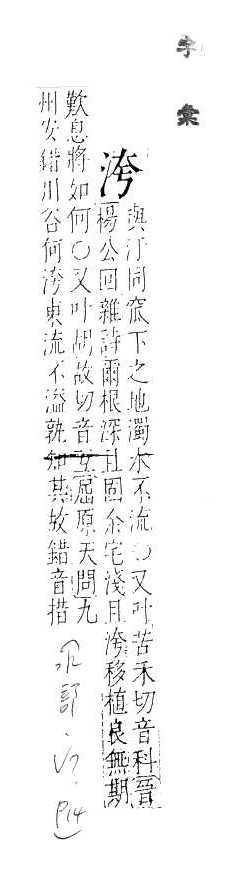 字彙
洿
與汙同窊下之地濁水不流〇又叶苦禾切音科晉
楊公回雜詩爾根深且固余宅淺且洿移植良無期
歎息將如何〇又叶胡故切音互屈原天問九
州安錯川谷何洿東流不溢孰知其故錯音措
(水部· P14)